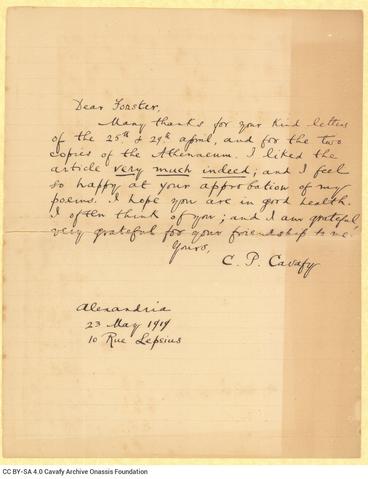 Dear Forster,
Many thanks for your kind letters
of the 25th & 29th april, and for the two
copies of the Athenaeum. I liked the
article very much indeed; and I feel
so happy at your approbation of my
poems. I hope you are in good health.
I often think of you; and I am grateful,
very grateful for your friendship to me.
Yours,
C. P. Cavafy
Alexandria
23 May 1919
10 Rue Lepsius
CC BY-SA 4.0 Cavafy Archive Onassis Foundation